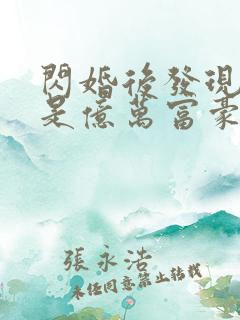 閃婚後發現
是億萬富豪
張永浩
未任同意禁止轉載